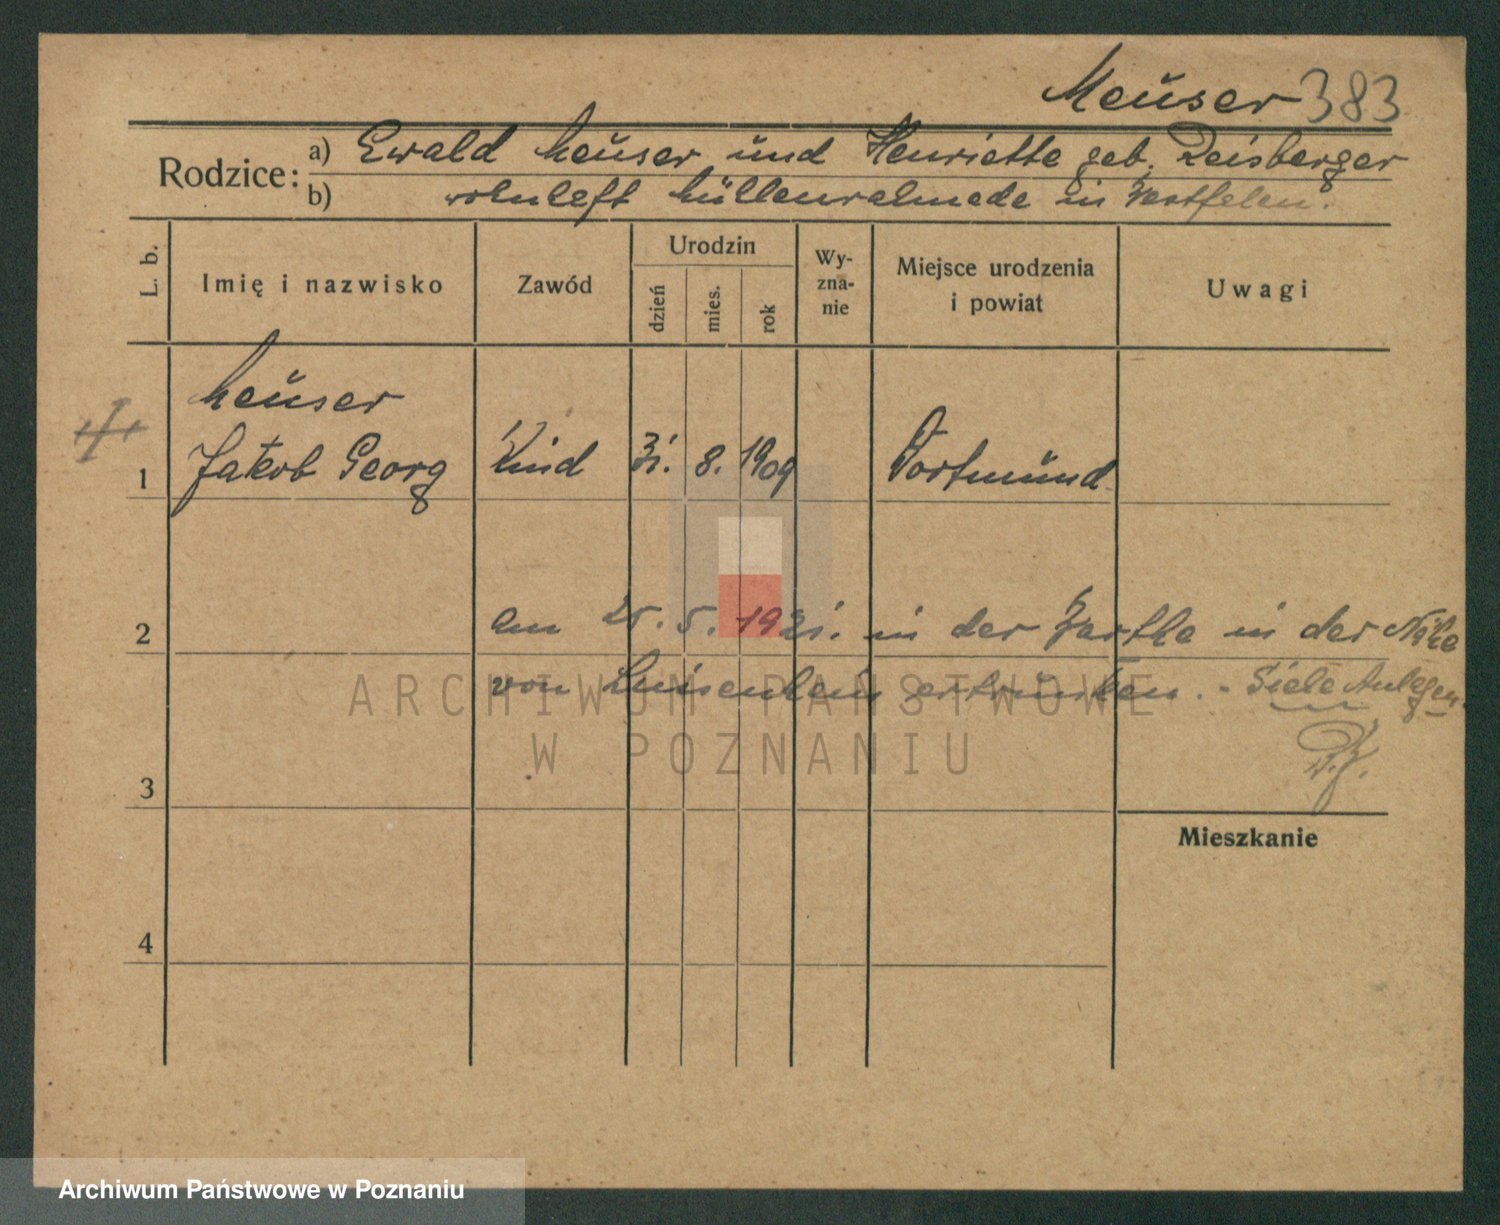 Meuser 383
Rodzice: a) Ewald Meuser und Henriette geb. Reisberger
b) wohnhaft in Westfelen.
L. b.
Imię i nazwisko
Zawód
Urodzin
dzień
mies.
rok
Wy-
zna-
nie
Miejsce urodzenia
i powiat
Uwagi
Meuser
1 Jakob Georg Kind 31. 8. 1909 Dortmund
2 am 25. 5. 1921. in der Warthe in der Nähe
von Luisenhain ertrunken. - Siehe Anlagen.
3
Mieszkanie
4
ARCHIWUM PAŃSTWOWE
W POZNANIU
Archiwum Państwowe w Poznaniu